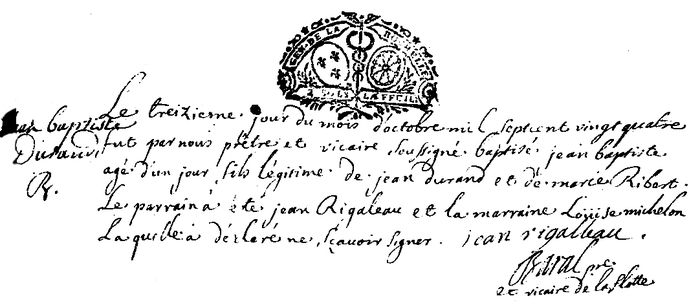 GEN. DE LA ROCHELLE
LA FEUIL
Jean baptiste
Durand
B.
Le treizieme jour du mois d'octobre mil septcent vingt quatre
fut par nous prêtre et vicaire soussigné baptisé jean baptiste
agé d'un jour fils légitime de jean durand et de marie Ribert.
Le parrain à été jean Rigaleau et la marraine Louise michelon
Laquelle à déclaré ne sçavoir signer. jean rigalleau.
pre.
et vicaire de la flotte